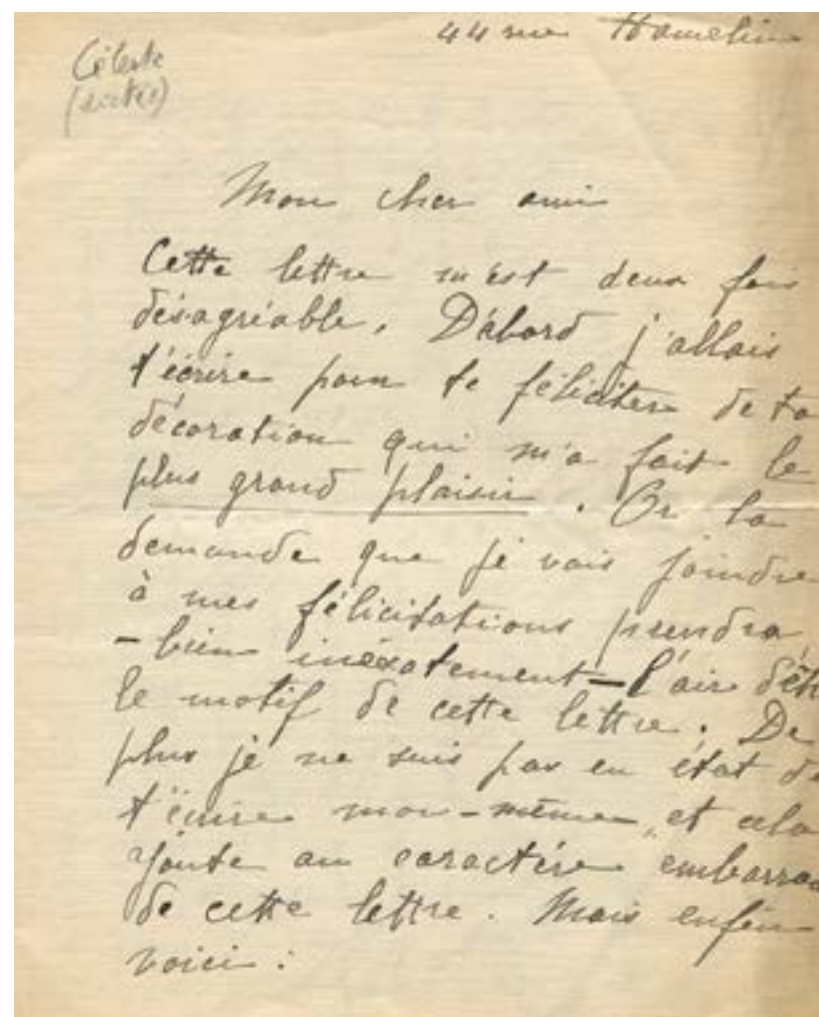 44 rue Hamelin
Céleste
(dictée)
Mon cher ami
Cette lettre m'est deux fois
désagréable. D'abord j'allais
t'écrire pour te féliciter de ta
décoration qui m'a fait le
plus grand plaisir. Or la
demande que je vais joindre
à mes félicitations prendra,
- bien inéxatement - l'air d'êt
le motif de cette lettre. De
plus je ne suis pas en état de
t'écrire moi-même, et cela
ajoute au caractère embarras
de cette lettre. Mais enfin
voici :